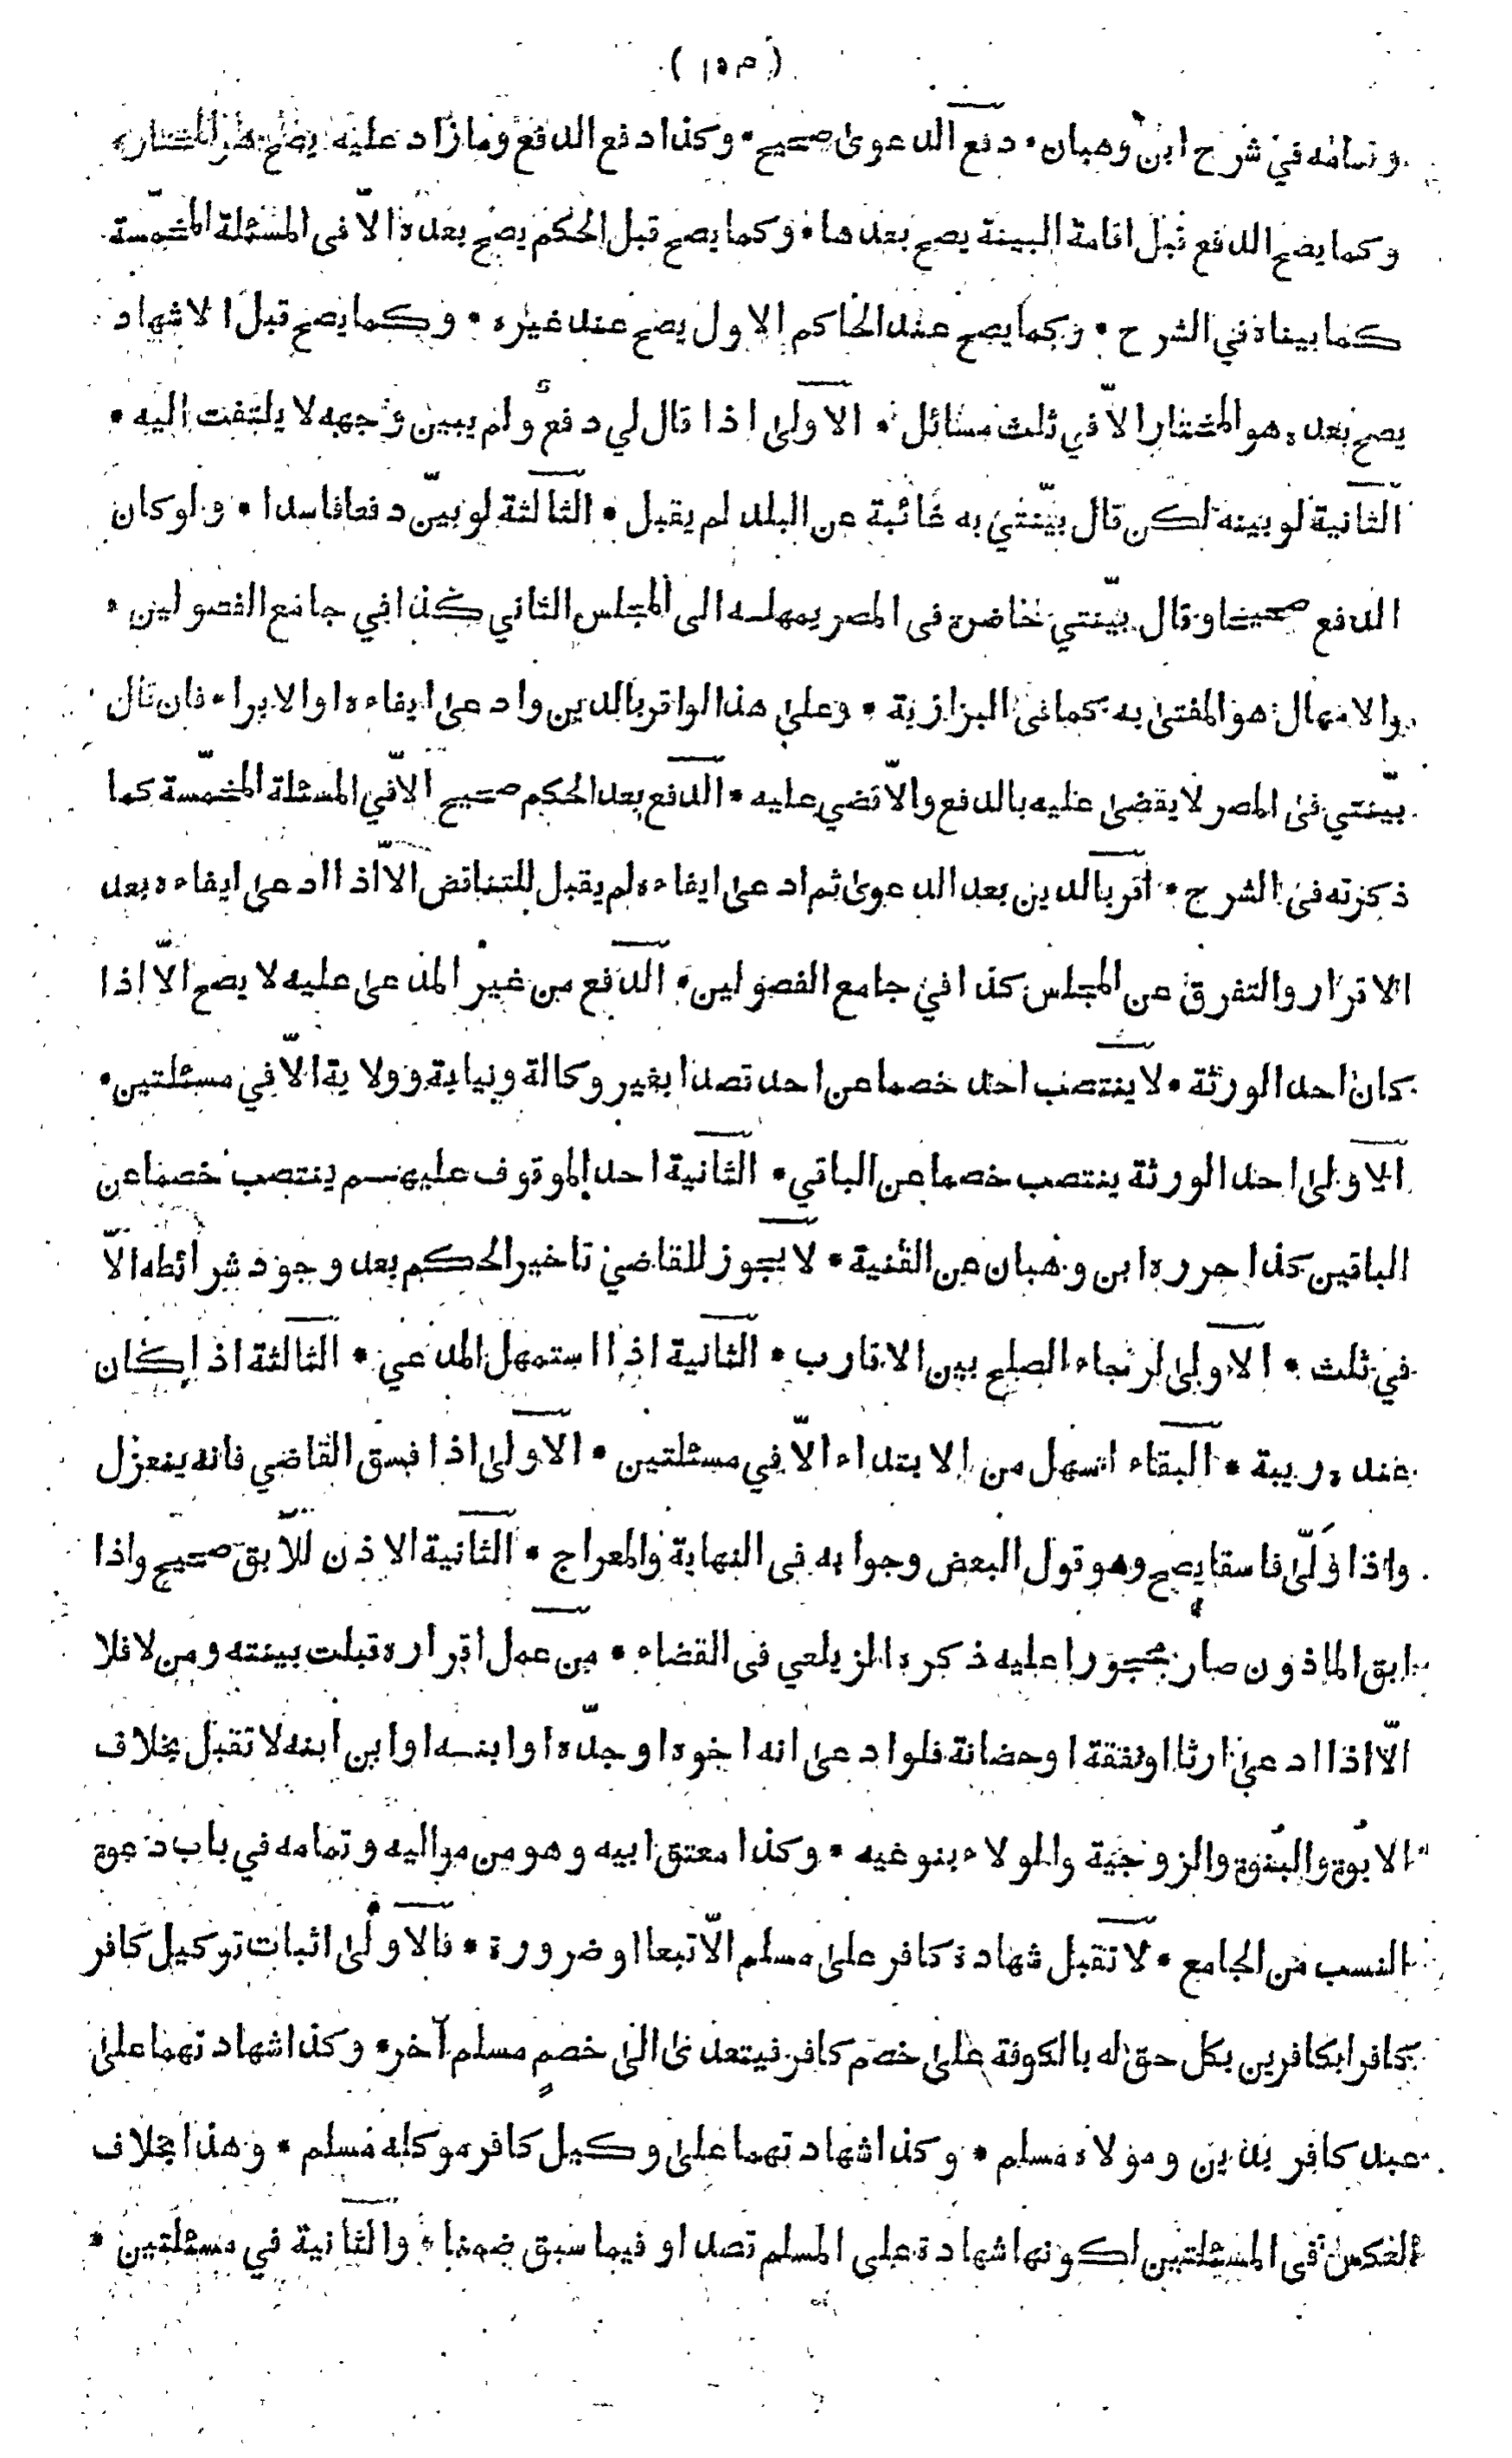 ( ٣٥١ )
وتمامه في شرح ابن وهبان * دفع الدعوى صحيح * وكذا دفع الدفع وما زاد عليه يصح هو المختار
وكما يصح الدفع قبل اقامة البينة يصح بعدها * وكما يصح قبل الحكم يصح بعده الّا فى المسئلة المخمّسة
كما بيناه في الشرح * وكما يصح عند الحاكم الاول يصح عند غيره * وكما يصح قبل الاشهاد
يصح بعده هو المختار الّا في ثلث مسائل * الاولى اذا قال لي دفع ولم يبين وجهه لا يلتفت اليه *
الثانية لو بينه لكن قال بيّنتي به غائبة عن البلد لم يقبل * الثالثة لو بيّن دفعا فاسدا * ولو كان
الدفع صحيحا وقال بيّنتي حاضرة فى المصر يمهله الى المجلس الثاني كذا في جامع الفصولين *
والامهال هو المفتى به كما فى البزازية * وعلى هذا لو اقر بالدين وادعى ايفاءه او الابراء فان قال
بيّنتي فى المصر لا يقضى عليه بالدفع والّا قضي عليه * الدفع بعد الحكم صحيح الّا في المسئلة المخمّسة كما
ذكرته فى الشرح * اقر بالدين بعد الدعوى ثم ادعى ايفاءه لم يقبل للتناقض الّا اذا ادعى ايفاءه بعد
الاقرار والتفرق عن المجلس كذا في جامع الفصولين * الدفع من غير المدعى عليه لا يصح الّا اذا
كان احد الورثة * لا ينتصب احد خصما عن احد قصدا بغير وكالة ونيابة وولاية الّا في مسئلتين *
الاولى احد الورثة ينتصب خصما عن الباقي * الثانية احد الموقوف عليهم ينتصب خصما عن
الباقين كذا حرره ابن وهبان عن القنية * لا يجوز للقاضي تاخير الحكم بعد وجود شرائطه الّا
في ثلث * الاولى لرجاء الصلح بين الاقارب * الثانية اذا استمهل المدعي * الثالثة اذا كان
عنده ريبة * البقاء اسهل من الابتداء الّا في مسئلتين * الاولى اذا فسق القاضي فانه ينعزل
واذا وَلّى فاسقا يصح وهو قول البعض وجوابه فى النهاية والمعراج * الثانية الاذن للآبق صحيح واذا
ابق الماذون صار محجورا عليه ذكره الزيلعي فى القضاء * من عمل اقراره قبلت بينته ومن لا فلا
الّا اذا ادعى ارثا او نفقة او حضانة فلو ادعى انه اخوه او جدّه او ابنه او ابن ابنه لا تقبل بخلاف
الابوة والبنوة والزوجية والولاء بنوعيه * وكذا معتق ابيه وهو من مواليه وتمامه في باب دعوة
النسب من الجامع * لا تقبل شهادة كافر على مسلم الّا تبعا او ضرورة * فالاولى اثبات توكيل كافر
كافرا بكافرين بكل حق له بالكوفة على خصم كافر فيتعدى الى خصمٍ مسلم آخر * وكذا شهادتهما على
عبد كافر بدين ومولاه مسلم * وكذا شهادتهما على وكيل كافر موكله مسلم * وهذا بخلاف
العكس فى المسئلتين لكونها شهادة على المسلم قصدا وفيما سبق ضمنا * والثانية في مسئلتين *